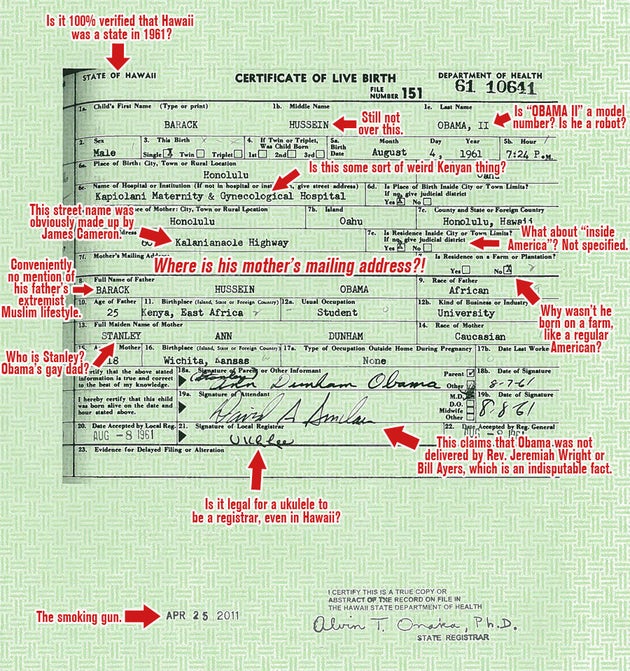 Is it 100% verified that Hawaii
was a state in 1961?
STATE OF HAWAII
CERTIFICATE OF LIVE BIRTH
DEPARTMENT OF HEALTH
FILE
NUMBER 151
61 10641
1a. Child's First Name (Type or print)
1b. Middle Name
1c. Last Name
BARACK
HUSSEIN
OBAMA, II
Still not
over this.
Is "OBAMA II" a model
number? Is he a robot?
2. Sex
Male
3. This Birth
Single X Twin Triplet
4. If Twin or Triplet,
Was Child Born
1st 2nd 3rd
5a. Birth
Date
Month
Day
Year
August
4,
1961
5b. Hour
7:24 P.M.
6a. Place of Birth: City, Town or Rural Location
Honolulu
Is this some sort of weird Kenyan thing?
6c. Name of Hospital or Institution (If not in hospital or give street address)
Kapiolani Maternity & Gynecological Hospital
6d. Is Place of Birth Inside City or Town Limits?
If no, give judicial district
Yes X No
This street name was
obviously made up by
James Cameron.
of Mother: City, Town or Rural Location
Honolulu
7b. Island
Oahu
7c. County and State or Foreign Country
Honolulu, Hawaii
Kalanianaole Highway
7e. Is Residence Inside City or Town Limits?
If no, give judicial district
Yes X No
What about "inside
America"? Not specified.
7f. Mother's Mailing Address
Where is his mother's mailing address?!
Is Residence on a Farm or Plantation?
Yes No X
Conveniently
no mention of
his father's
extremist
Muslim lifestyle.
8. Full Name of Father
BARACK
HUSSEIN
OBAMA
9. Race of Father
African
10. Age of Father
25
11. Birthplace (Island, State or Foreign Country)
Kenya, East Africa
12a. Usual Occupation
Student
12b. Kind of Business or Industry
University
Why wasn't he
born on a farm,
like a regular
American?
13. Full Maiden Name of Mother
STANLEY
ANN
DUNHAM
14. Race of Mother
Caucasian
Who is Stanley?
Obama's gay dad?
Mother
18
16. Birthplace (Island, State or Foreign Country)
Wichita, Kansas
17a. Type of Occupation Outside Home During Pregnancy
None
17b. Date Last Worked
I certify that the above stated
information is true and correct
to the best of my knowledge.
18a. Signature of Parent or Other Informant
(Stanley) Ann Dunham Obama
Parent
Other
18b. Date of Signature
8-7-61
I hereby certify that this child
was born alive on the date and
hour stated above.
19a. Signature of Attendant
David A Sinclair
M.D.
D.O.
Midwife
Other
19b. Date of Signature
8/8/61
20. Date Accepted by Local Reg.
AUG -8 1961
21. Signature of Local Registrar
22. Date Accepted by Reg. General
23. Evidence for Delayed Filing or Alteration
This claims that Obama was not
delivered by Rev. Jeremiah Wright or
Bill Ayers, which is an indisputable fact.
Is it legal for a ukulele to
be a registrar, even in Hawaii?
The smoking gun.
APR 25 2011
I CERTIFY THIS IS A TRUE COPY OR
ABSTRACT OF THE RECORD ON FILE IN
THE HAWAII STATE DEPARTMENT OF HEALTH
Alvin T. Onaka, Ph.D.
STATE REGISTRAR